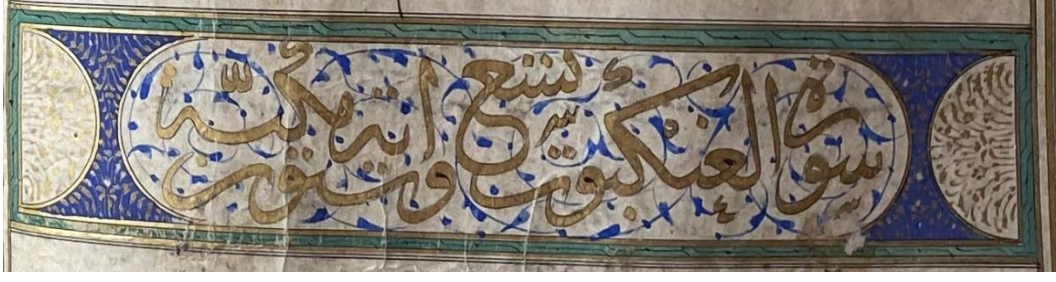 سورة العنكبوت تسع وستون اية مكية